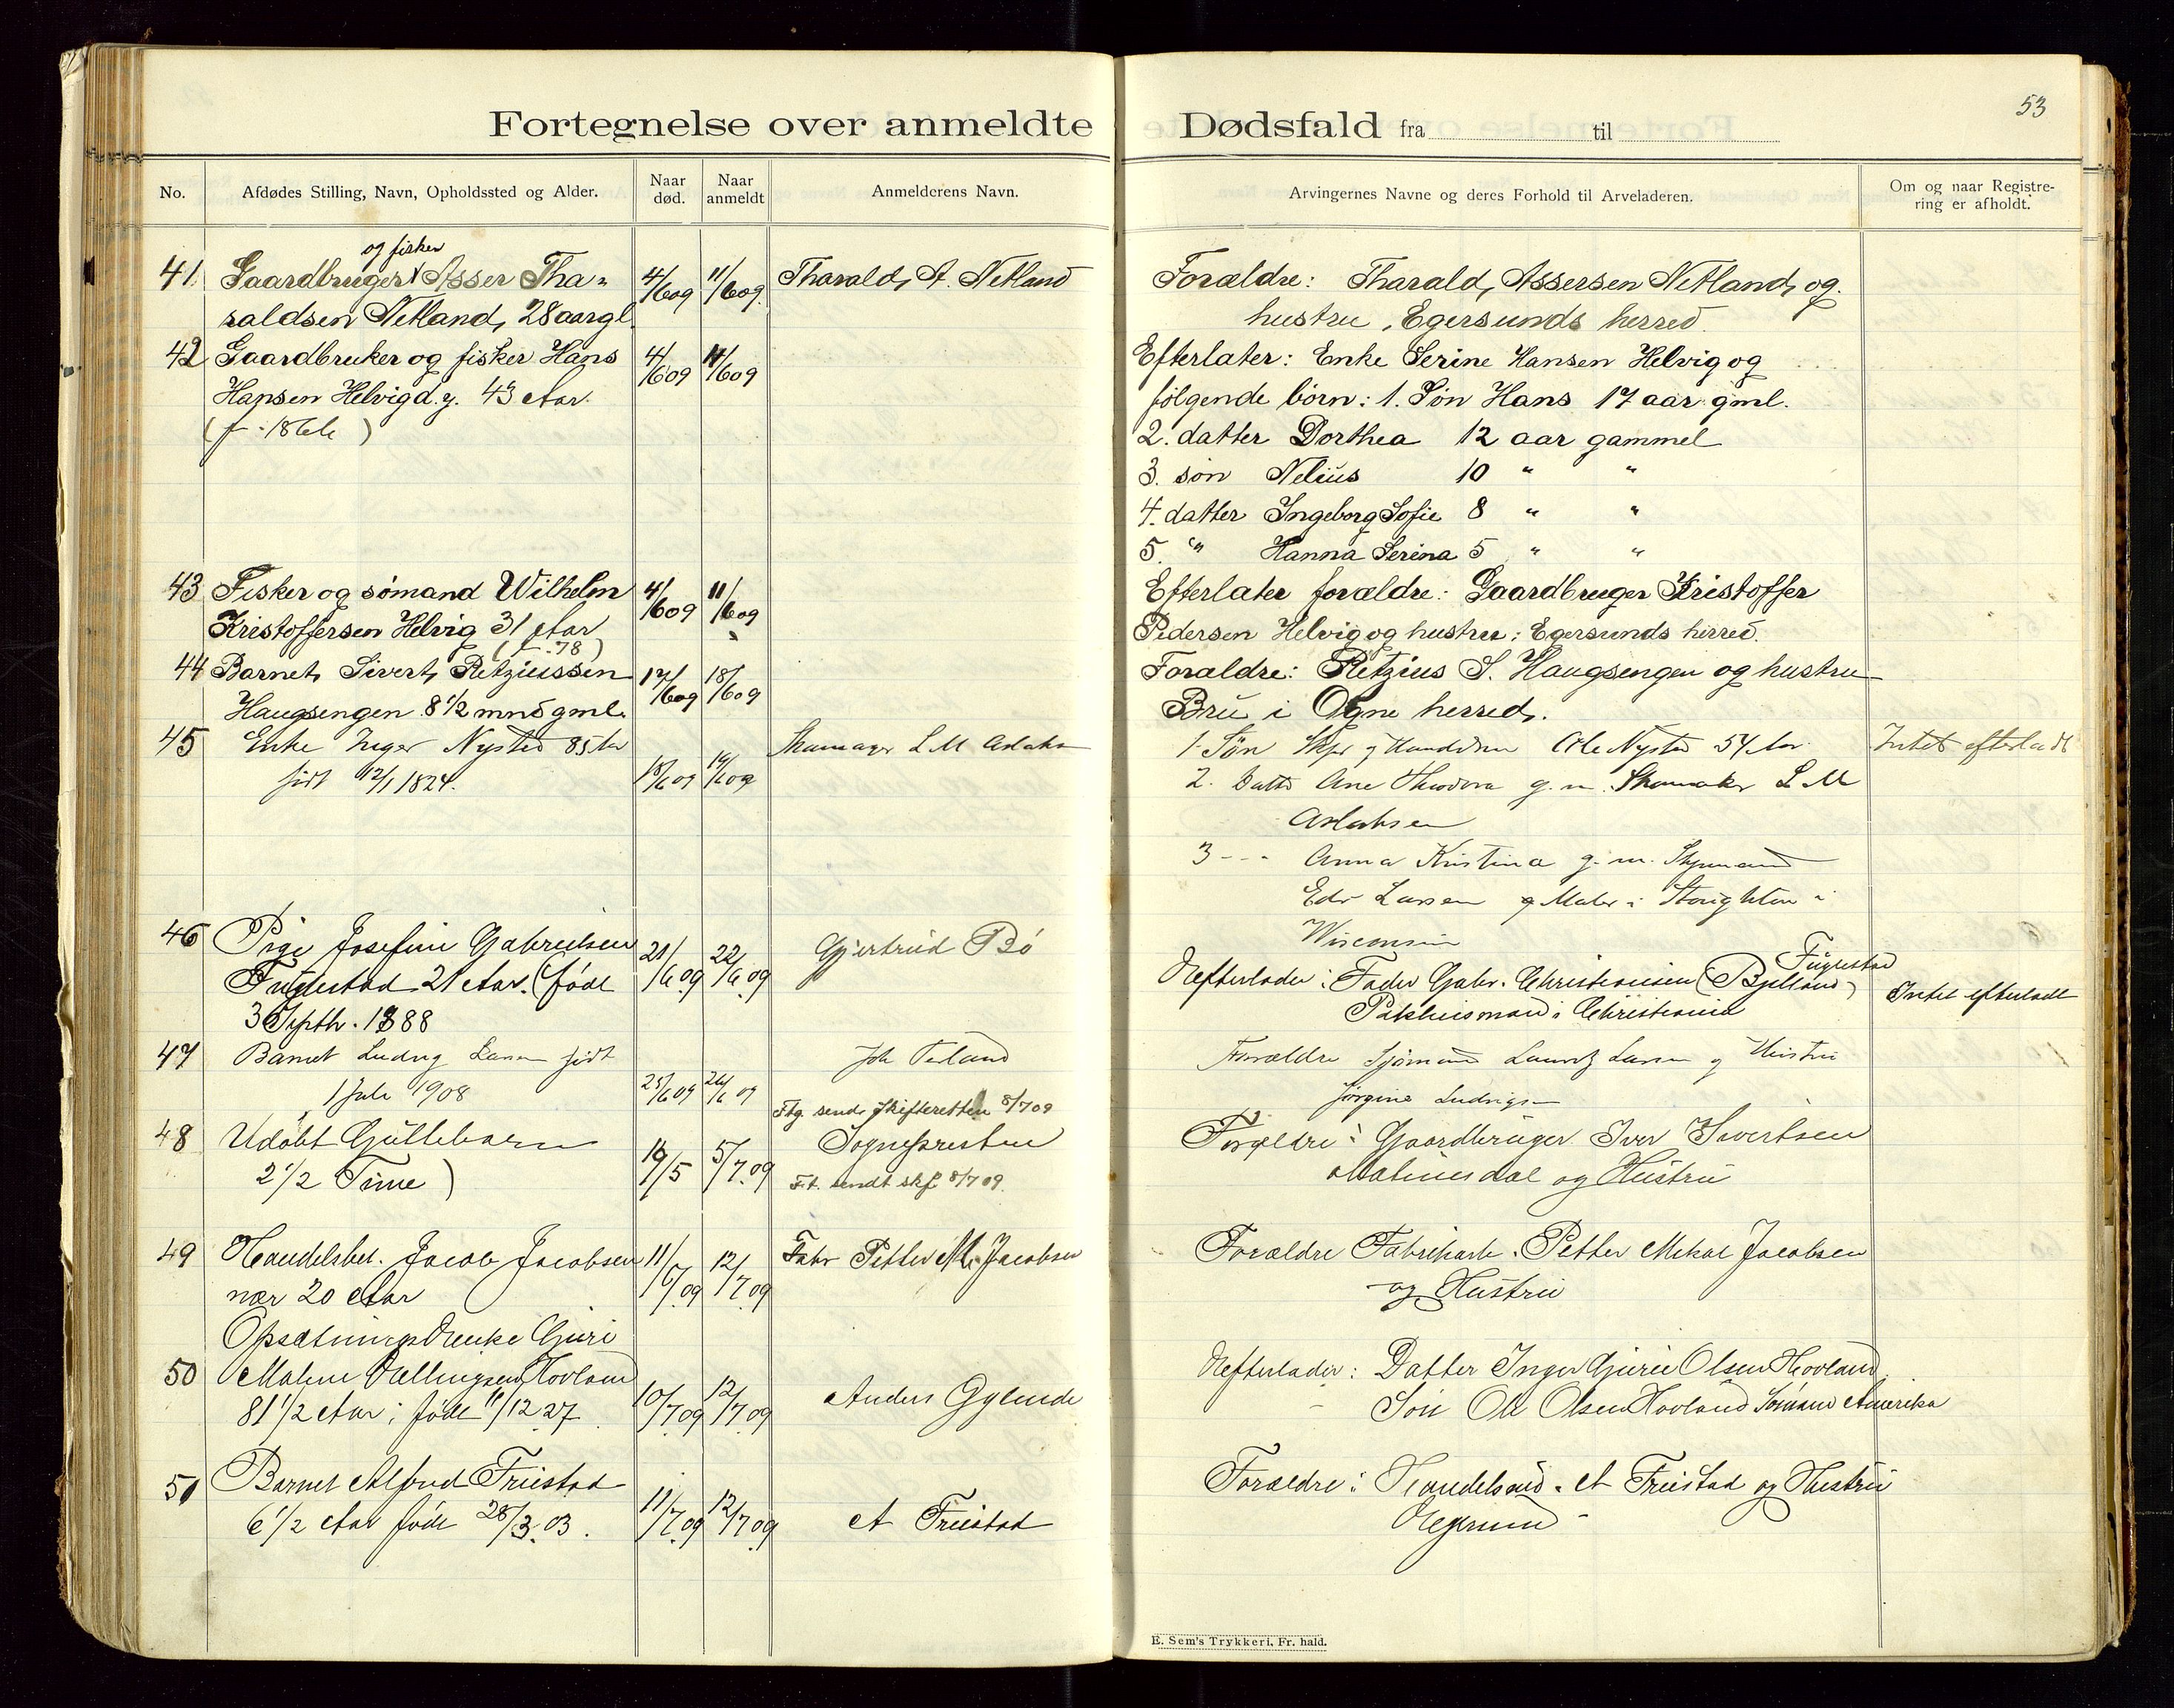 53
Fortegnelse over anmeldte Dødsfald fra til
No.
Afdødes Stilling, Navn, Opholdssted og Alder.
Naar død.
Naar anmeldt
Anmelderens Navn.
Arvingernes Navne og deres Forhold til Arveladeren.
Om og naar Registre-
ring er afholdt.
og fisker
41 Gaardbruger Asser Tha- 4/6 09 11/6 09. Tharald A. Netland Forældre: Tharald Assersen Netland og
raldsen Netland, 28 aar gl. hustru, Egersunds herred.
42 Gaardbruker og fisker Hans 4/6 09 11/6 09 Efterlater: Enke Serine Hansen Helvig og
Hansen Helvig d.y. 43 Aar. følgende børn: 1. Søn Hans 17 aar gml.
2. datter Dorthea 12 aar gammel
3. søn Nelius 10 " "
4. datter Ingeborg Sofie 8 " "
5. " Hanna Serina 5 " "
43 Fisker og sømand Wilhelm 4/6 09 11/6 09 Efterlater forældre: Gaardbruger Kristoffer
Kristoffersen Helvig 31 Aar Pedersen Helvig og hustru; Egersunds herred.
(f. 78)
44 Barnet Sivert Retziussen 17/6 09 18/6 09 Forældre: Retzius S. Haugsengen og hustru
Haugsengen 8 1/2 mnd gml. Bru i Ogne herred.
45 Enke Inger Nysted 85 Aar 18/6 09 19/6 09 Skomager L M Aslaks 1. Søn Ole Nysted 54 Aar. Intet efterladt
født 12/1 1824. 2. Datter Ane Theodora g. m. Skomaker L M
Aslaksen
3 - - - Anna Kristina g. m. Skipmand
Edv Larsen og Maler i Stoughton i
Wisconsin
46 Pige Josefine Gabrielsen 21/6 09 22/6 09 Gjertrud Bø Efterlader: Fader Gabr. Christensen (Bjelland) Fuglestad
Fuglestad 21 Aar. (født Pakhusmand i Christiania Intet efterladt
3 Septb. 1888
47 Barnet Ludvig Larsen født 25/6 09 26/6 09 Joh Teland Forældre Sjømand Lauritz Larsen og Hustru
1 Juli 1908 Jørgine Ludvigs
Ftg. sendt skifteretten 8/7 09
48 Udøbt Guttebarn 19/5 5/7.09 Sognepresten Forældre: Gaardbruger Iver Sivertsen
2 1/2 Time) F.t. sendt skf 8/7 09. og Hustru
49 Handelsbet. Jacob Jacobsen 11/6/09 12/7 09 Fabr Petter M. Jacobsen Forældre Fabrikarb. Petter Mikal Jacobsen
nær 20 Aar og Hustru
Opsætningsdreuke Guri
50 Malene Ellingsen Hovland 10/7 09 12/7 09 Anders Gylende Efterlader: Datter Inger Gurie Olsen Hovland
81 1/2 Aar; født 11/12 27 - Søn Ole Olsen Hovland Sømand Amerika
51 Barnet Alfred Friestad 11/7.09 12/7 09 A Friestad Forældre: Handelsmd. A Friestad og Hustru
6 1/2 Aar født 28/3.03. Egersund
E. Sem's Trykkeri, Fr. hald.